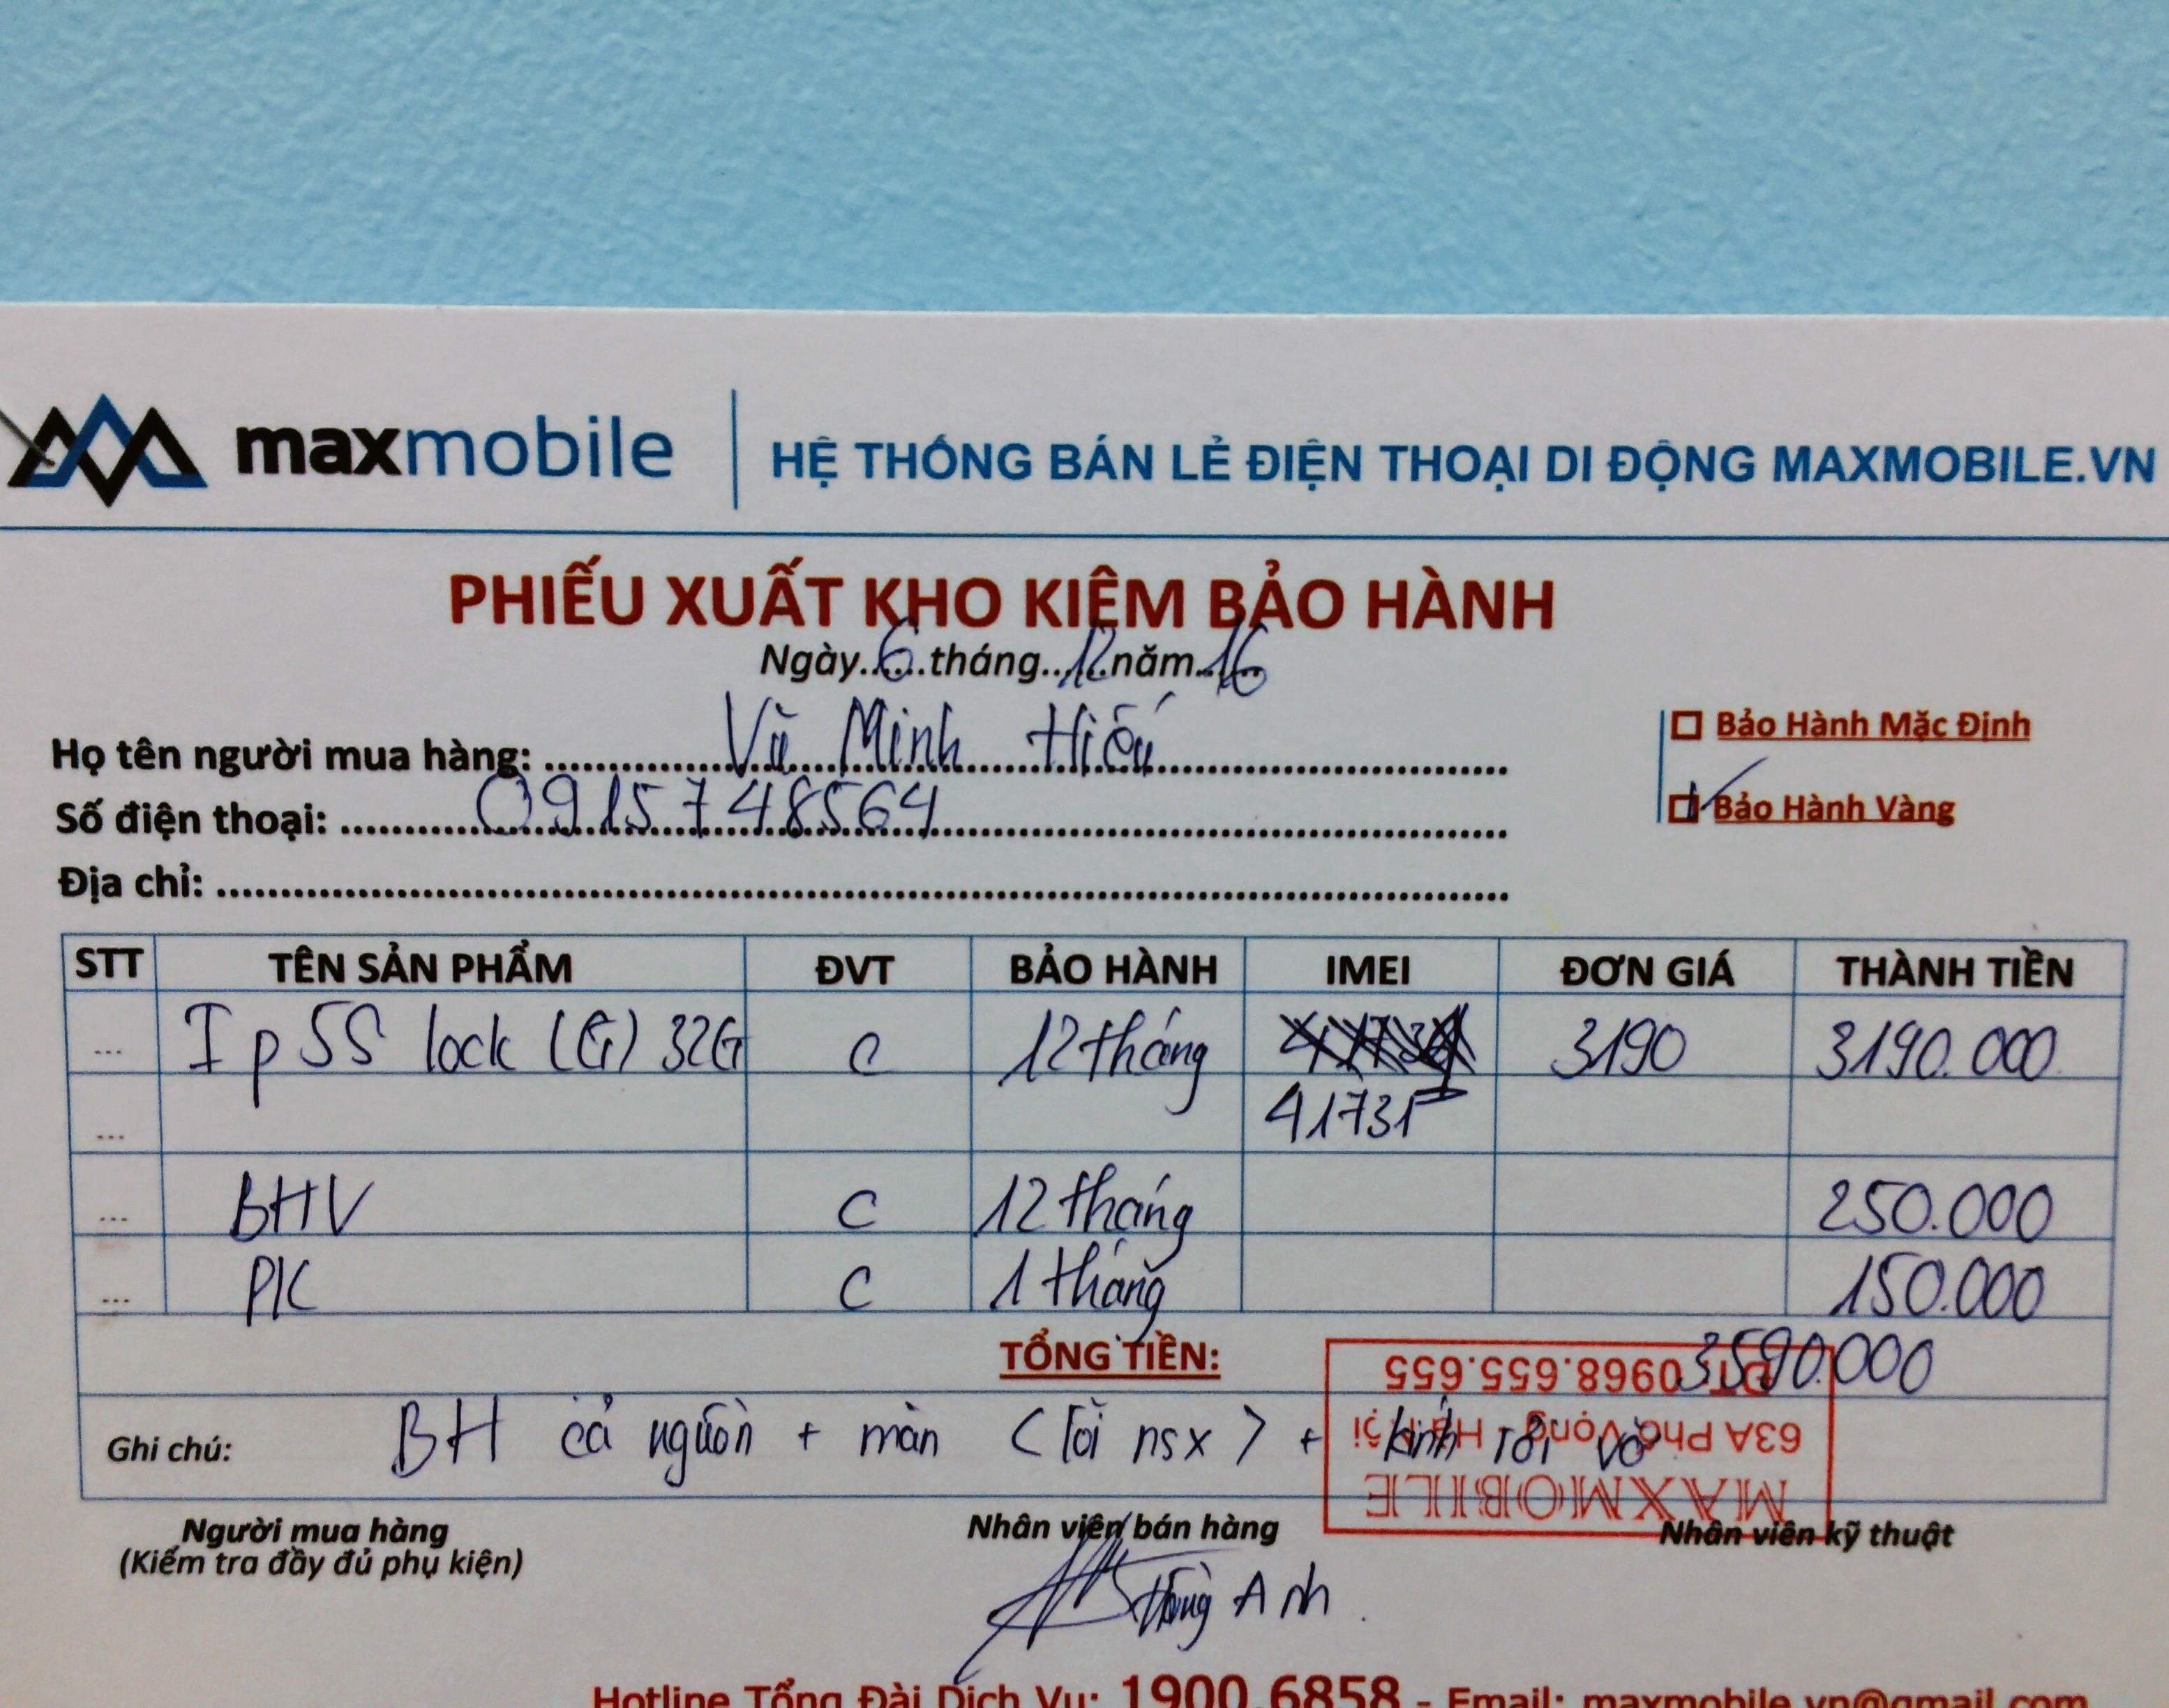 maxmobile
HỆ THỐNG BÁN LẺ ĐIỆN THOẠI DI ĐỘNG MAXMOBILE.VN
PHIẾU XUẤT KHO KIÊM BẢO HÀNH
Ngày..6..tháng..12.năm..16
Họ tên người mua hàng: Vũ Minh Hiếu
Bảo Hành Mặc Định
Số điện thoại: 0915748564
Bảo Hành Vàng
Địa chỉ:
STT TÊN SẢN PHẨM ĐVT BẢO HÀNH IMEI ĐƠN GIÁ THÀNH TIỀN
... Ip 5S lock (G) 32G C 12 tháng 3190 3190.000
... 41731
... BHV C 12 tháng 250.000
... PK C 1 tháng 150.000
TỔNG TIỀN: 3590.000
Ghi chú: BH cả nguồn + màn <lỗi nsx> + kính rơi vỡ
MAXMOBILE
63A Phố Vọng - Hà Nội
ĐT 0968.655.655
Người mua hàng Nhân viên bán hàng Nhân viên kỹ thuật
(Kiểm tra đầy đủ phụ kiện)
Anh
Hotline Tổng Đài Dịch Vụ: 1900.6858 - Email: maxmobile.vn@gmail.com